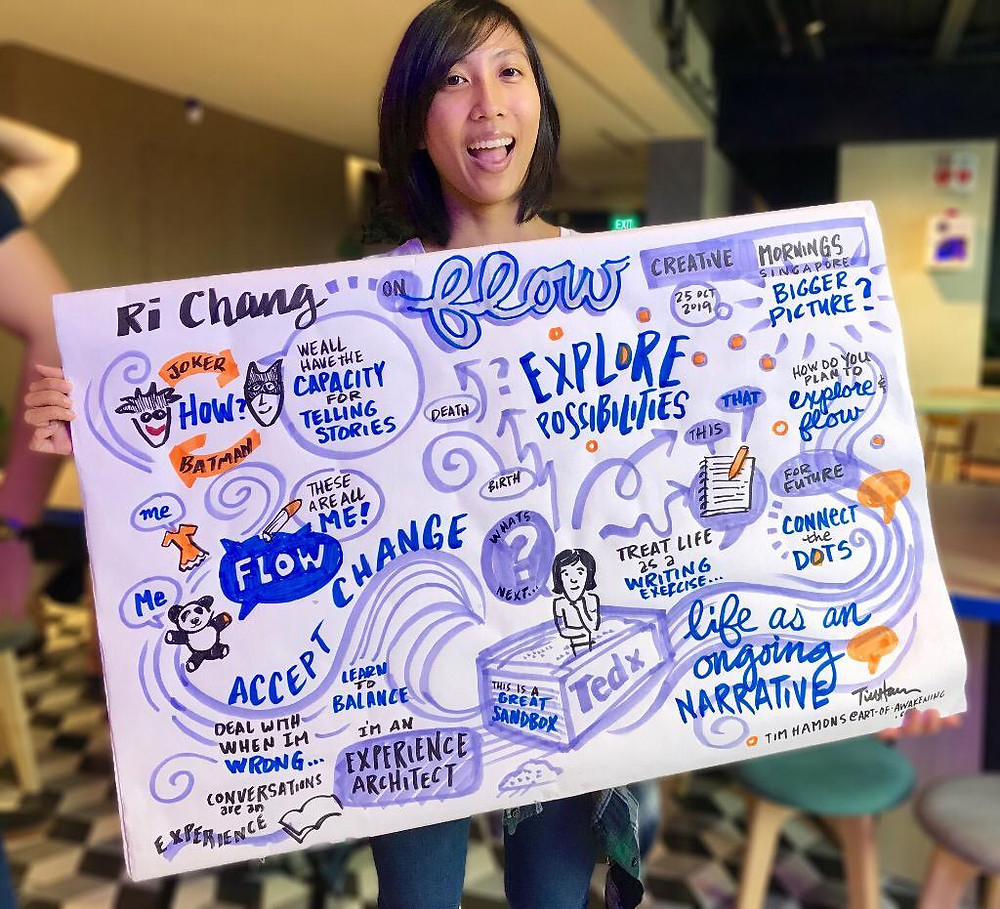 Ri Chang
ON
flow
CREATIVE MORNINGS
SINGAPORE
25 OCT
2019
BIGGER
PICTURE?
JOKER
HOW?
BATMAN
WE ALL
HAVE THE
CAPACITY
FOR
TELLING
STORIES
DEATH
?
BIRTH
EXPLORE
POSSIBILITIES
THIS
THAT
HOW DO YOU
PLAN TO
explore &
flow
FOR
FUTURE
CONNECT
the
DOTS
me
Me
THESE
ARE ALL
ME!
FLOW
CHANGE
ACCEPT
WHATS
?
NEXT...
TREAT LIFE
as a
WRITING
EXERCISE...
life as an
ongoing
NARRATIVE
LEARN
TO
BALANCE
THIS IS A
GREAT
SANDBOX
Tedx
DEAL WITH
WHEN IM
WRONG...
I'M AN
EXPERIENCE
ARCHITECT
CONVERSATIONS
are an
EXPERIENCE
TIM HAMONS@ART-OF-AWAKENING
EXIT